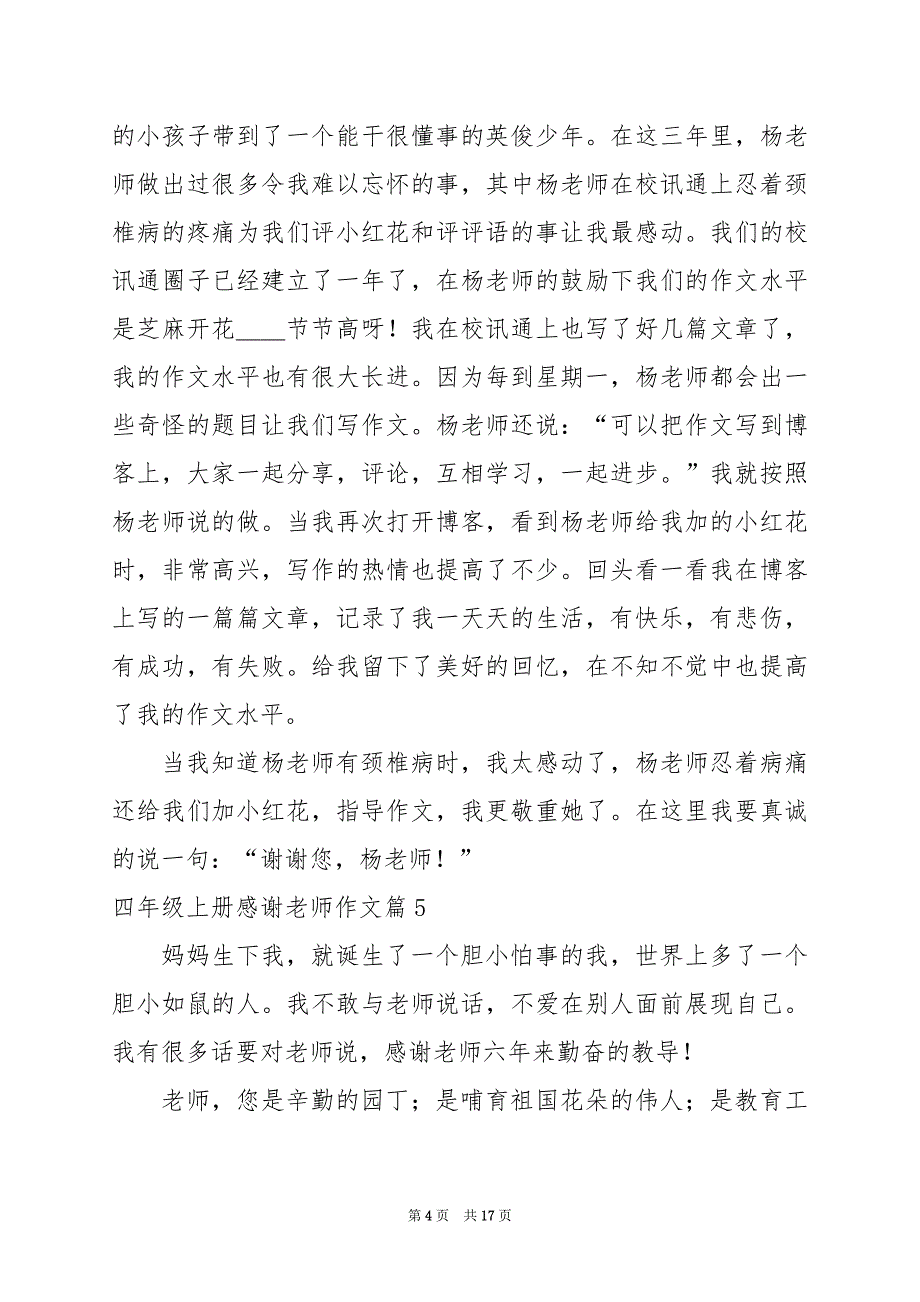 的小孩子带到了一个能干很懂事的英俊少年。在这三年里，杨老
师做出过很多令我难以忘怀的事，其中杨老师在校讯通上忍着颈
椎病的疼痛为我们评小红花和评评语的事让我最感动。我们的校
讯通圈子已经建立了一年了，在杨老师的鼓励下我们的作文水平
是芝麻开花____节节高呀！我在校讯通上也写了好几篇文章了，
我的作文水平也有很大长进。因为每到星期一，杨老师都会出一
些奇怪的题目让我们写作文。杨老师还说：“可以把作文写到博
客上，大家一起分享，评论，互相学习，一起进步。”我就按照
杨老师说的做。当我再次打开博客，看到杨老师给我加的小红花
时，非常高兴，写作的热情也提高了不少。回头看一看我在博客
上写的一篇篇文章，记录了我一天天的生活，有快乐，有悲伤，
有成功，有失败。给我留下了美好的回忆，在不知不觉中也提高
了我的作文水平。
当我知道杨老师有颈椎病时，我太感动了，杨老师忍着病痛
还给我们加小红花，指导作文，我更敬重她了。在这里我要真诚
的说一句：“谢谢您，杨老师！”
四年级上册感谢老师作文篇5
妈妈生下我，就诞生了一个胆小怕事的我，世界上多了一个
胆小如鼠的人。我不敢与老师说话，不爱在别人面前展现自己。
我有很多话要对老师说，感谢老师六年来勤奋的教导！
老师，您是辛勤的园丁；是哺育祖国花朵的伟人；是教育工
第 4 页 共 17 页